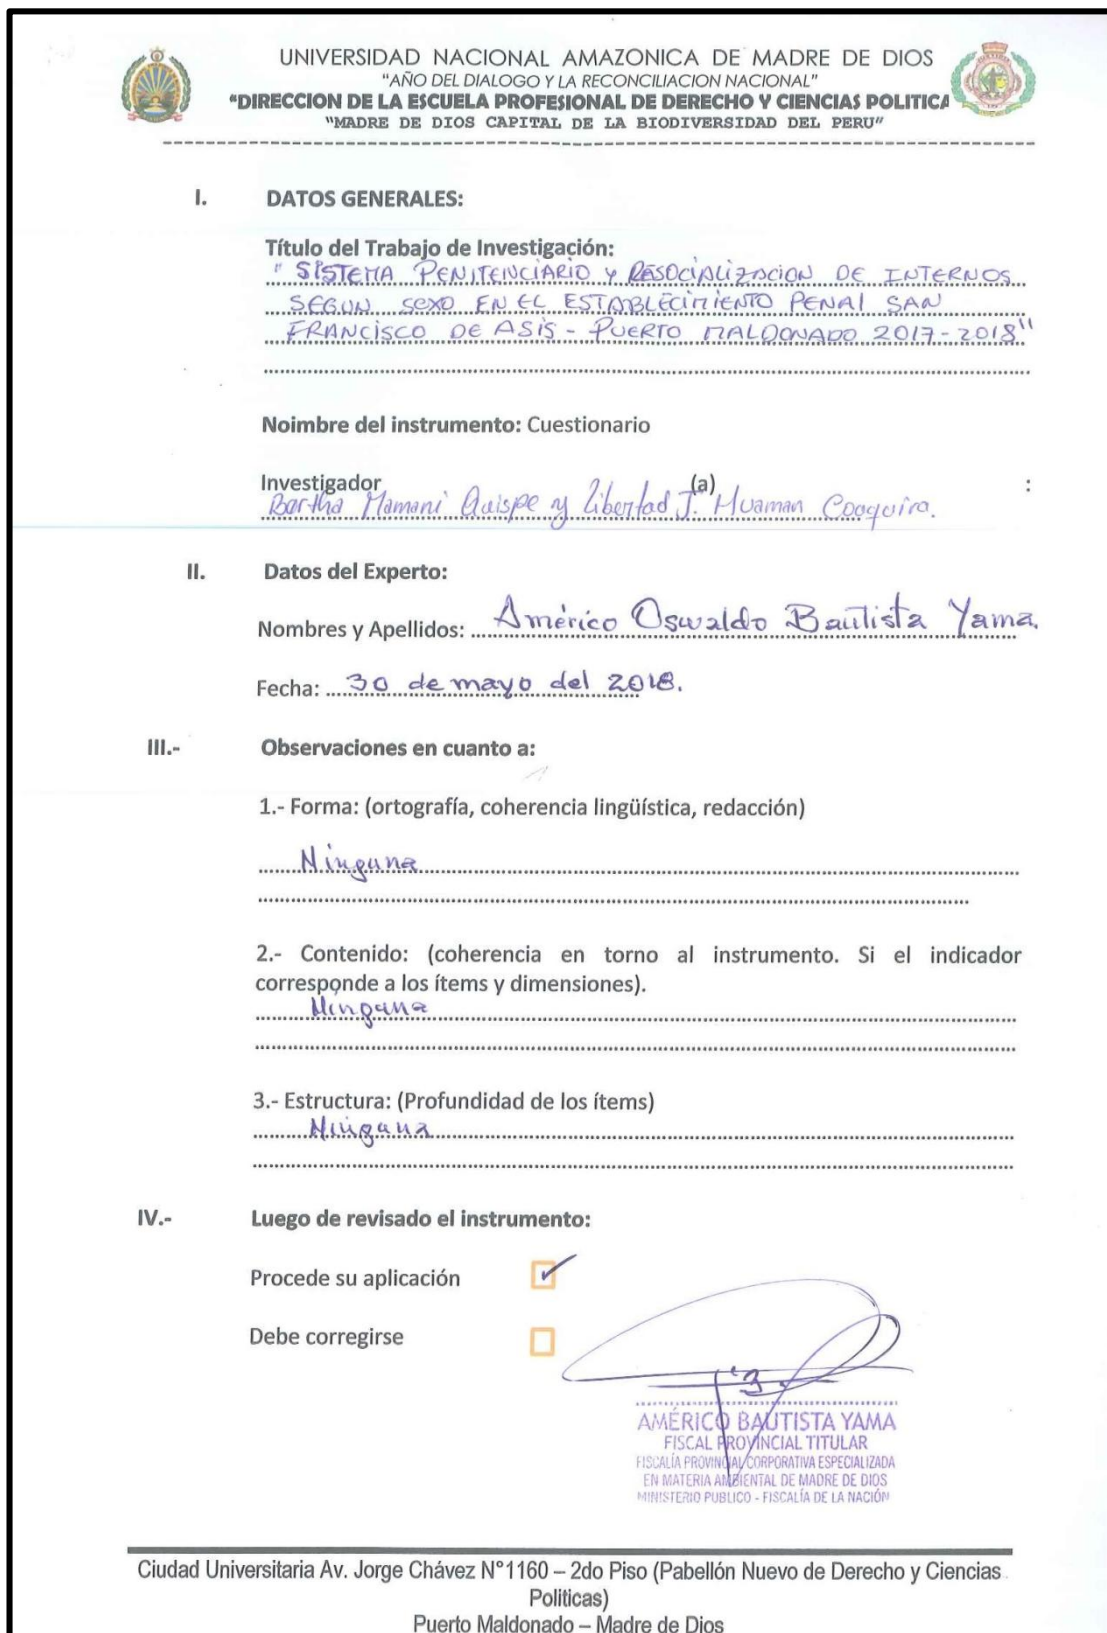 UNIVERSIDAD NACIONAL AMAZONICA DE MADRE DE DIOS
"AÑO DEL DIALOGO Y LA RECONCILIACION NACIONAL"
"DIRECCION DE LA ESCUELA PROFESIONAL DE DERECHO Y CIENCIAS POLITICA
"MADRE DE DIOS CAPITAL DE LA BIODIVERSIDAD DEL PERU"
I. DATOS GENERALES:
Título del Trabajo de Investigación:
"SISTEMA PENITENCIARIO Y RESOCIALIZACION DE INTERNOS
SEGUN SEXO EN EL ESTABLECIMIENTO PENAL SAN
FRANCISCO DE ASIS - PUERTO MALDONADO 2017-2018"
Noimbre del instrumento: Cuestionario
Investigador (a) :
Bertha Mamani Quispe y Libertad J. Huaman Coaquira.
II. Datos del Experto:
Nombres y Apellidos: Américo Oswaldo Bautista Yama.
Fecha: 30 de mayo del 2018.
III.- Observaciones en cuanto a:
1.- Forma: (ortografía, coherencia lingüística, redacción)
Ninguna
2.- Contenido: (coherencia en torno al instrumento. Si el indicador
corresponde a los ítems y dimensiones).
Ninguna
3.- Estructura: (Profundidad de los ítems)
Ninguna
IV.- Luego de revisado el instrumento:
Procede su aplicación ✓
Debe corregirse
AMÉRICO BAUTISTA YAMA
FISCAL PROVINCIAL TITULAR
FISCALÍA PROVINCIAL CORPORATIVA ESPECIALIZADA
EN MATERIA AMBIENTAL DE MADRE DE DIOS
MINISTERIO PUBLICO - FISCALÍA DE LA NACIÓN
Ciudad Universitaria Av. Jorge Chávez N°1160 – 2do Piso (Pabellón Nuevo de Derecho y Ciencias
Politicas)
Puerto Maldonado – Madre de Dios